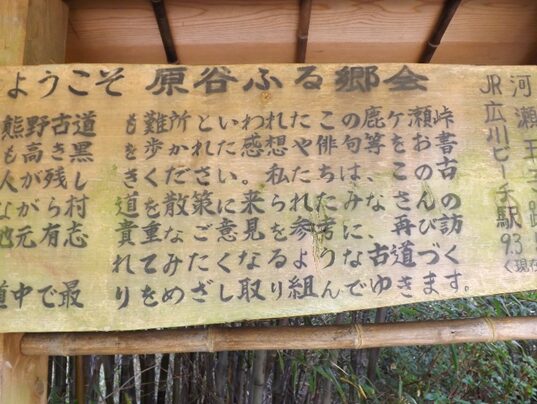 ようこそ 原谷ふる郷会
熊野古道
も高き黒
人が残し
ながら村
地元有志
道中で最
も難所といわれたこの鹿ケ瀬峠
を歩かれた感想や俳句等をお書
きください。私たちは、この古
道を散策に来られたみなさんの
貴重なご意見を参考に、再び訪
れてみたくなるような古道づく
りをめざし取り組んでゆきます。
河瀬王子
JR広川ビーチ駅
9.3